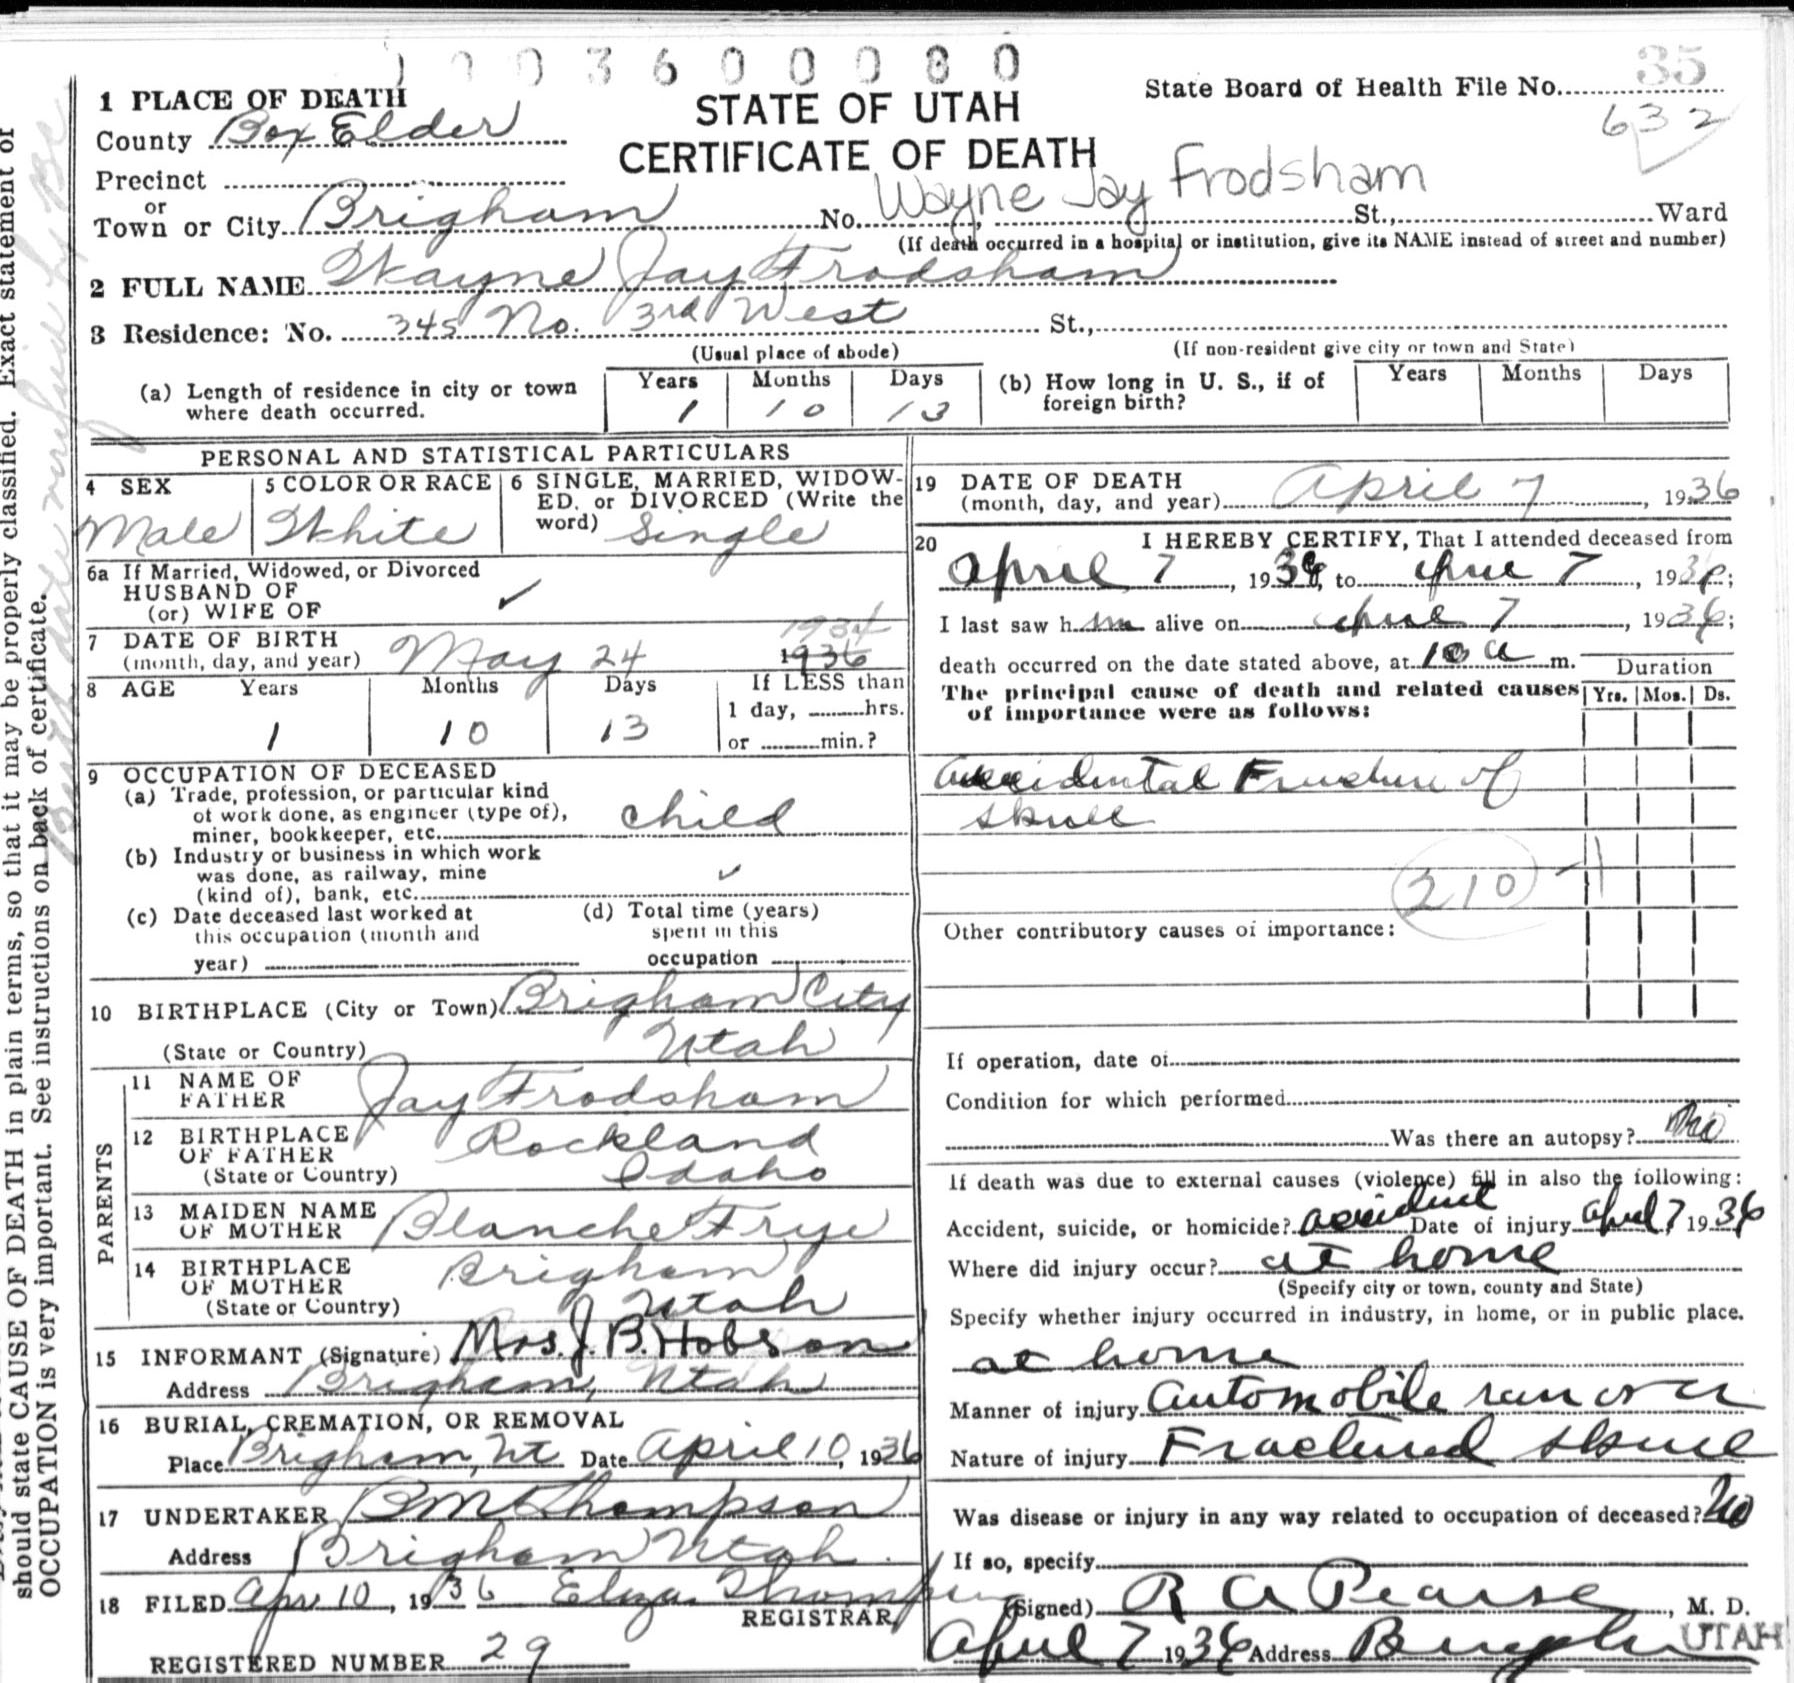 1 0 0 3 6 0 0 0 8 0
35
State Board of Health File No.
632
STATE OF UTAH
CERTIFICATE OF DEATH
1 PLACE OF DEATH
County Box Elder
Precinct
or
Town or City Brigham No. Wayne Jay Frodsham St., Ward
(If death occurred in a hospital or institution, give its NAME instead of street and number)
2 FULL NAME Wayne Jay Frodsham
3 Residence: No. 345 No. 3rd West St.,
(Usual place of abode) (If non-resident give city or town and State)
(a) Length of residence in city or town where death occurred. Years 1 Months 10 Days 13
(b) How long in U. S., if of foreign birth? Years Months Days
PERSONAL AND STATISTICAL PARTICULARS
4 SEX
Male
5 COLOR OR RACE
White
6 SINGLE, MARRIED, WIDOW-
ED, or DIVORCED (Write the
word) Single
6a If Married, Widowed, or Divorced
HUSBAND OF
(or) WIFE OF ✓
7 DATE OF BIRTH 1934
(month, day, and year) May 24 1936
8 AGE Years Months Days If LESS than
1 10 13 1 day, hrs.
or min.?
9 OCCUPATION OF DECEASED
(a) Trade, profession, or particular kind
of work done, as engineer (type of),
miner, bookkeeper, etc. child
(b) Industry or business in which work
was done, as railway, mine
(kind of), bank, etc. ✓
(c) Date deceased last worked at
this occupation (month and
year)
(d) Total time (years)
spent in this
occupation
10 BIRTHPLACE (City or Town) Brigham City
(State or Country) Utah
PARENTS
11 NAME OF
FATHER Jay Frodsham
12 BIRTHPLACE
OF FATHER Rockland
(State or Country) Idaho
13 MAIDEN NAME
OF MOTHER Blanche Frye
14 BIRTHPLACE
OF MOTHER Brigham
(State or Country) Utah
15 INFORMANT (Signature) Mrs. J. B. Hobson
Address Brigham, Utah
16 BURIAL, CREMATION, OR REMOVAL
Place Brigham, Ut Date April 10, 1936
17 UNDERTAKER B M Thompson
Address Brigham Utah
18 FILED Apr 10, 1936 Eliza Thompson
REGISTRAR
REGISTERED NUMBER 29
19 DATE OF DEATH
(month, day, and year) April 7, 1936
20 I HEREBY CERTIFY, That I attended deceased from
April 7, 1936, to April 7, 1936;
I last saw him alive on April 7, 1936;
death occurred on the date stated above, at 10 a m.
Duration
The principal cause of death and related causes Yrs. Mos. Ds.
of importance were as follows:
Accidental Fracture of
skull
210
Other contributory causes of importance:
If operation, date of
Condition for which performed
Was there an autopsy? No
If death was due to external causes (violence) fill in also the following:
Accident, suicide, or homicide? accident Date of injury April 7 1936
Where did injury occur? at home
(Specify city or town, county and State)
Specify whether injury occurred in industry, in home, or in public place.
at home
Manner of injury Automobile run over
Nature of injury Fractured skull
Was disease or injury in any way related to occupation of deceased? No
If so, specify
(Signed) R A Pearse, M. D.
April 7 1936 Address Brigham UTAH
should state CAUSE OF DEATH in plain terms, so that it may be properly classified. Exact statement of
OCCUPATION is very important. See instructions on back of certificate.